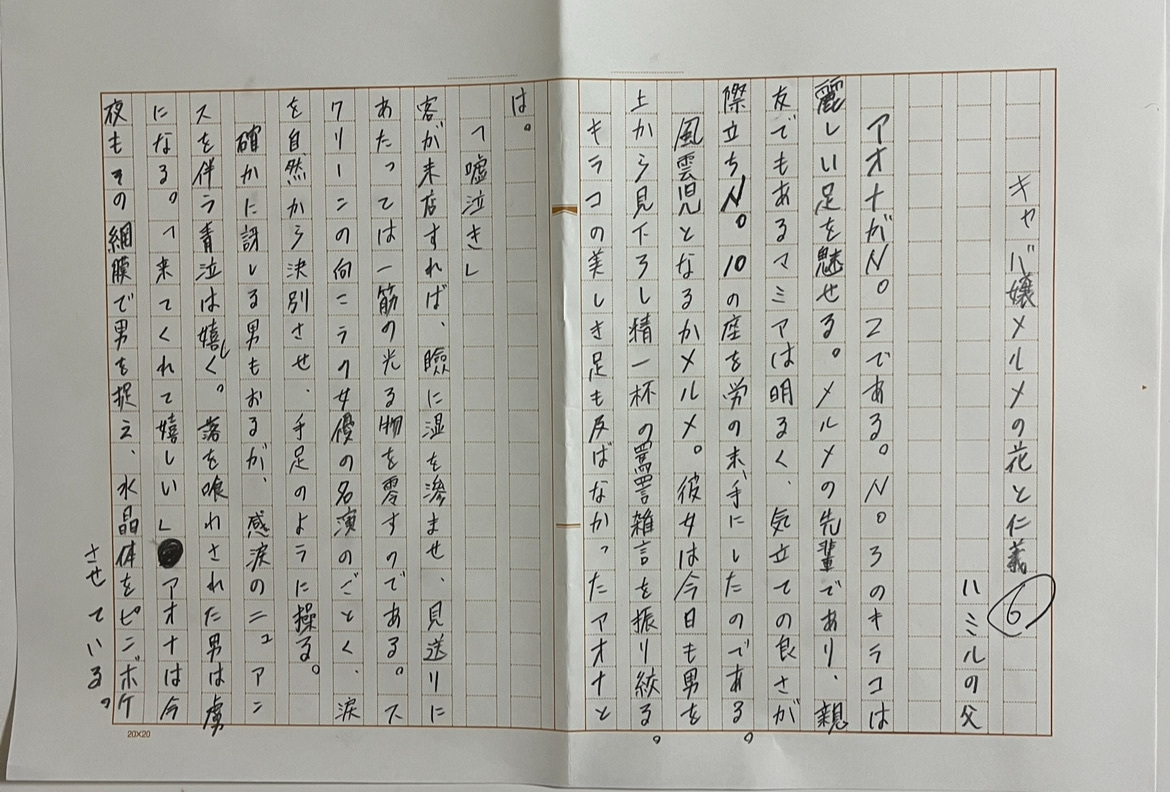 キャバ嬢メルメの花と仁義⑥
ハミルの父
アオナがN。2である。N。3のキラコは
麗しい足を魅せる。メルメの先輩であり、親
友でもあるマミアは明るく、気立ての良さが
際立ちN。10の座を労の末、手にしたのである。
風雲児となるかメルメ。彼女は今日も男を
上から見下ろし精一杯の罵詈雑言を振り絞る。
キラコの美しき足も及ばなかったアオナと
は。
「嘘泣き」
客が来店すれば、瞼に湿を滲ませ、見送りに
あたっては一筋の光る物を零すのである。ス
クリーンの向こうの女優の名演のごとく、涙
を自然から決別させ、手足のように操る。
確かに訝しる男もおるが、感涙のニュアン
スを伴う青泣は嬉しく。落を喰れされた男は虜
になる。「来てくれて嬉しい」アオナは今
夜もその網膜で男を捉え、水晶体をピンボケ
させている。
20×20